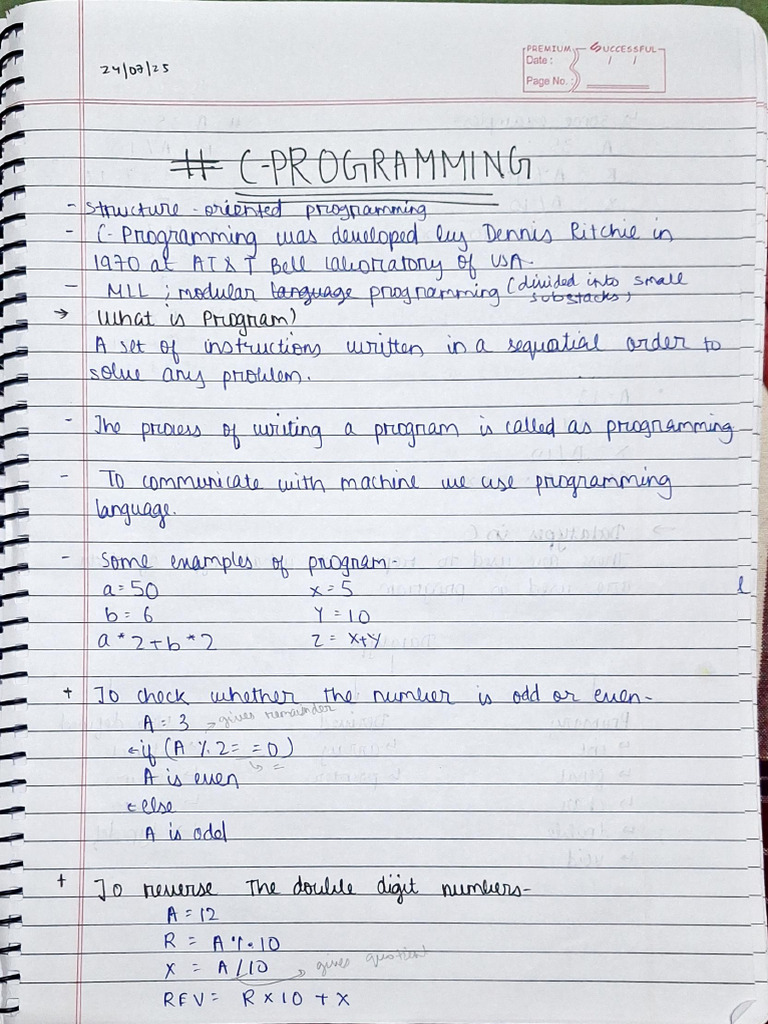 24/07/25
PREMIUM SUCCESSFUL
Date : / /
Page No.:
# C-PROGRAMMING
- Structure-oriented programming
- C-Programming was developed by Dennis Ritchie in
1970 at AT&T Bell laboratory of USA.
- MLL ; modular language programming (divided into small
substacks)
→ What is Program?
A set of instructions written in a sequatial order to
solve any problem.
- The process of writing a program is called as programming
- To communicate with machine we use programming
language.
- Some examples of program-
a = 50 x = 5
b = 6 Y = 10
a * 2 + b * 2 Z = X+Y
+ To check whether the number is odd or even-
A = 3 → gives remainder
if (A % 2 = = 0)
↳ =
A is even
else
A is odd
+ To reverse The double digit numbers-
A = 12
R = A % 10
X = A / 10 → gives quotient
REV = R × 10 + X